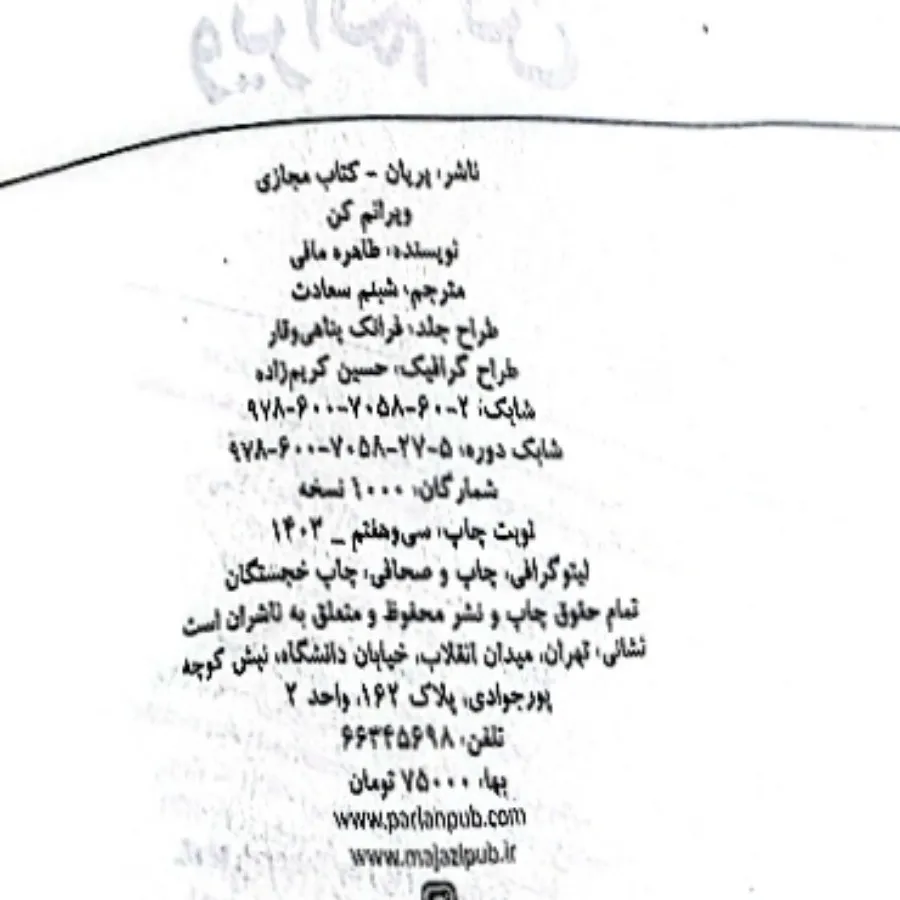 ویرانم کن
ناشر: پریان - کتاب مجازی
ویرانم کن
نویسنده: طاهره مافی
مترجم: شبنم سعادت
طراح جلد: فرانک پناهی‌وقار
طراح گرافیک: حسین کریم‌زاده
شابک: ۲-۶۰-۷۰۵۸-۶۰۰-۹۷۸
شابک دوره: ۵-۲۷-۷۰۵۸-۶۰۰-۹۷۸
شمارگان: ۱۰۰۰ نسخه
نوبت چاپ: سی‌وهفتم _ ۱۴۰۳
لیتوگرافی، چاپ و صحافی: چاپ خجستگان
تمام حقوق چاپ و نشر محفوظ و متعلق به ناشران است
نشانی: تهران، میدان انقلاب، خیابان دانشگاه، نبش کوچه
پورجوادی، پلاک ۱۶۲، واحد ۲
تلفن: ۶۶۳۴۵۶۹۸
بها: ۷۵۰۰۰ تومان
www.parianpub.com
www.majazipub.ir